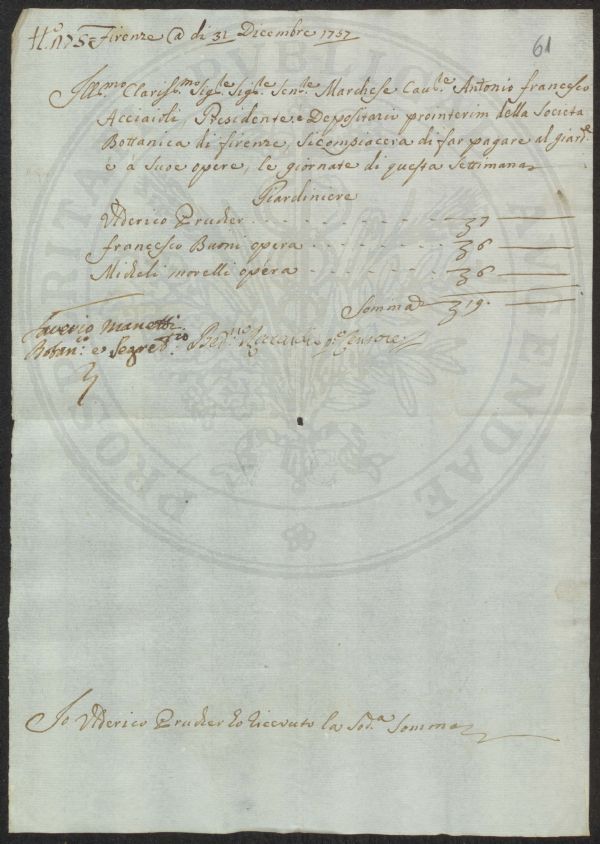 61
Firenze @ di 31 Dicembre 1757
Ill.mo Clariss.mo Sig.re Sig.re Sen.re Marchese Cau.re Antonio francesco
Acciaioli, Presidente e Depositario prointerim della Società
Bottanica di firenze, si compiacerà di far pagare al giard.e
e a Suoe opere, le giornate di questa Settimana
Giardiniere
Vlderico Prucher 7
francesco Buoni opera 6
Micheli morelli opera 6
Somma 19.
Saverio Manetti
Botan.co e Segret.rio
Io Vlderico Prucher ho riceuuto la Sod.a Somma
PROSPERITATI PUBLICAE AUGENDAE